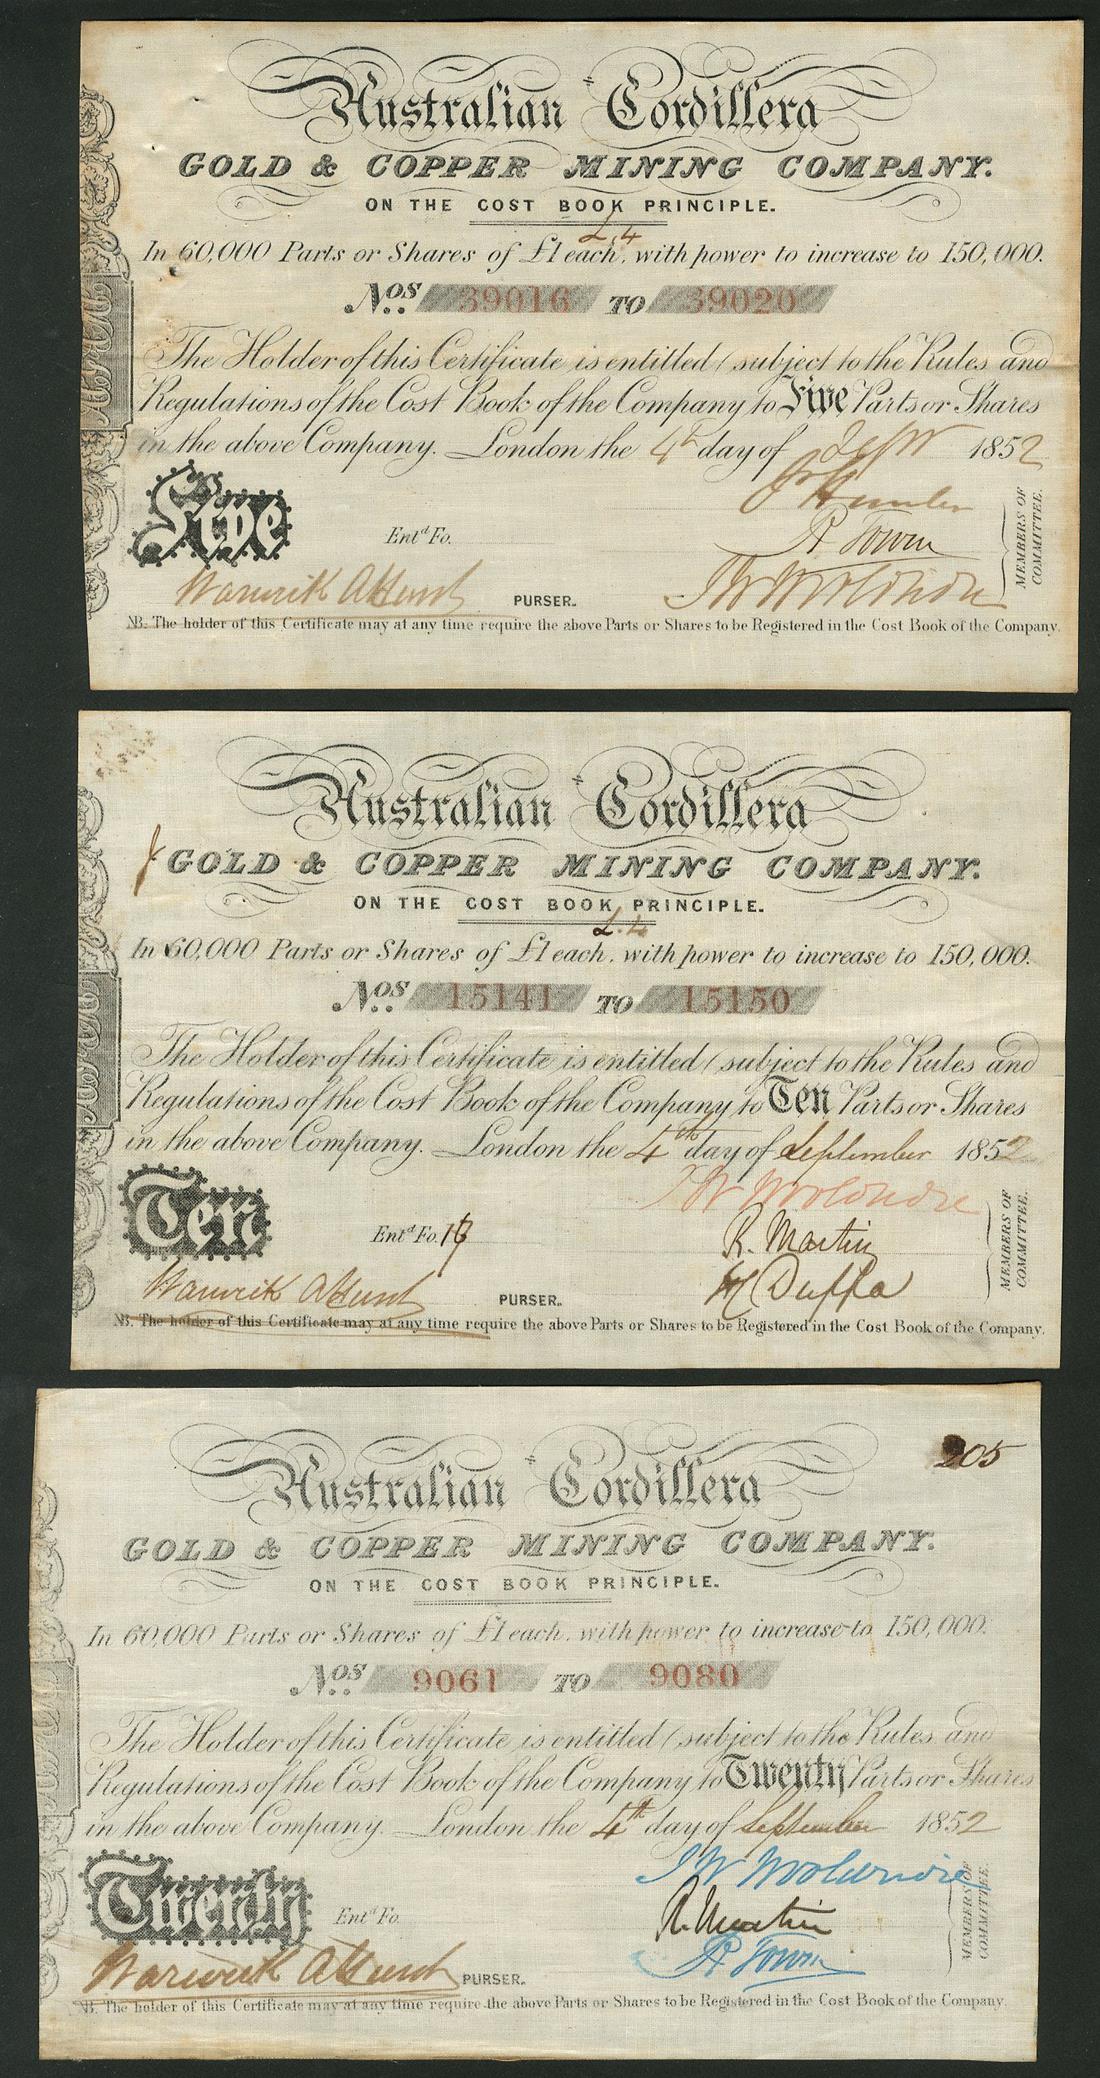 Australian Cordillera
GOLD & COPPER MINING COMPANY.
ON THE COST BOOK PRINCIPLE.
£.4
In 60,000 Parts or Shares of £1 each, with power to increase to 150,000.
Nos. 39016 TO 39020
The Holder of this Certificate is entitled (subject to the Rules and
Regulations of the Cost Book of the Company to Five Parts or Shares
in the above Company. London the 4th day of Septr 1852
Five
Entd Fo.
R Town
MEMBERS OF COMMITTEE.
Warwick A Hunt PURSER.
NB. The holder of this Certificate may at any time require the above Parts or Shares to be Registered in the Cost Book of the Company.
Australian Cordillera
GOLD & COPPER MINING COMPANY.
ON THE COST BOOK PRINCIPLE.
£.4
In 60,000 Parts or Shares of £1 each, with power to increase to 150,000.
Nos. 15141 TO 15150
The Holder of this Certificate is entitled (subject to the Rules and
Regulations of the Cost Book of the Company to Ten Parts or Shares
in the above Company. London the 4th day of September 1852
Ten
Entd Fo.
R. Martin
Duppa
MEMBERS OF COMMITTEE.
Warwick A Hunt PURSER.
NB. The holder of this Certificate may at any time require the above Parts or Shares to be Registered in the Cost Book of the Company.
205
Australian Cordillera
GOLD & COPPER MINING COMPANY.
ON THE COST BOOK PRINCIPLE.
In 60,000 Parts or Shares of £1 each, with power to increase to 150,000.
Nos. 9061 TO 9080
The Holder of this Certificate is entitled (subject to the Rules and
Regulations of the Cost Book of the Company to Twenty Parts or Shares
in the above Company. London the 4th day of September 1852
Twenty
Entd Fo.
R. Martin
R Town
MEMBERS OF COMMITTEE.
Warwick A Hunt PURSER.
NB. The holder of this Certificate may at any time require the above Parts or Shares to be Registered in the Cost Book of the Company.